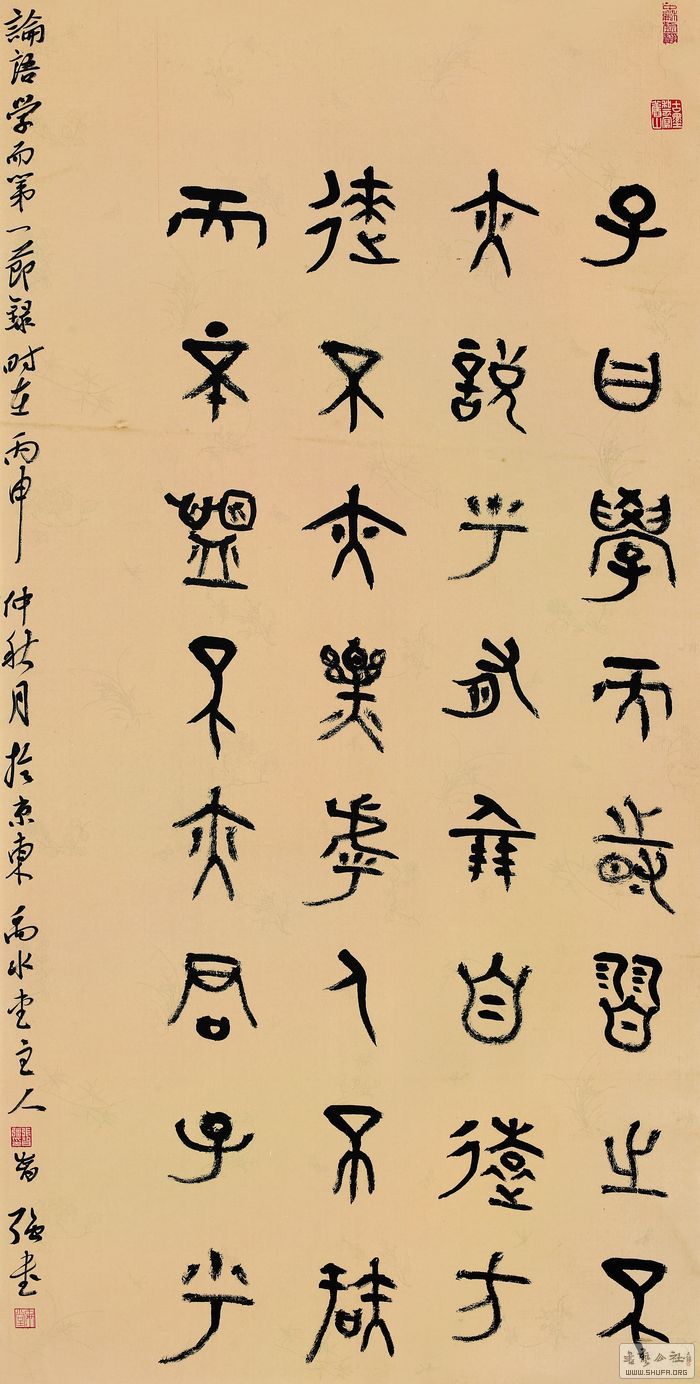 子曰學而時習之不
亦說乎有朋自遠方
來不亦樂乎人不知
而不慍不亦君子乎
論語学而第一節錄时在丙申仲秋月於京東禹水堂主人强书
书艺公社
WWW.SHUFA.ORG